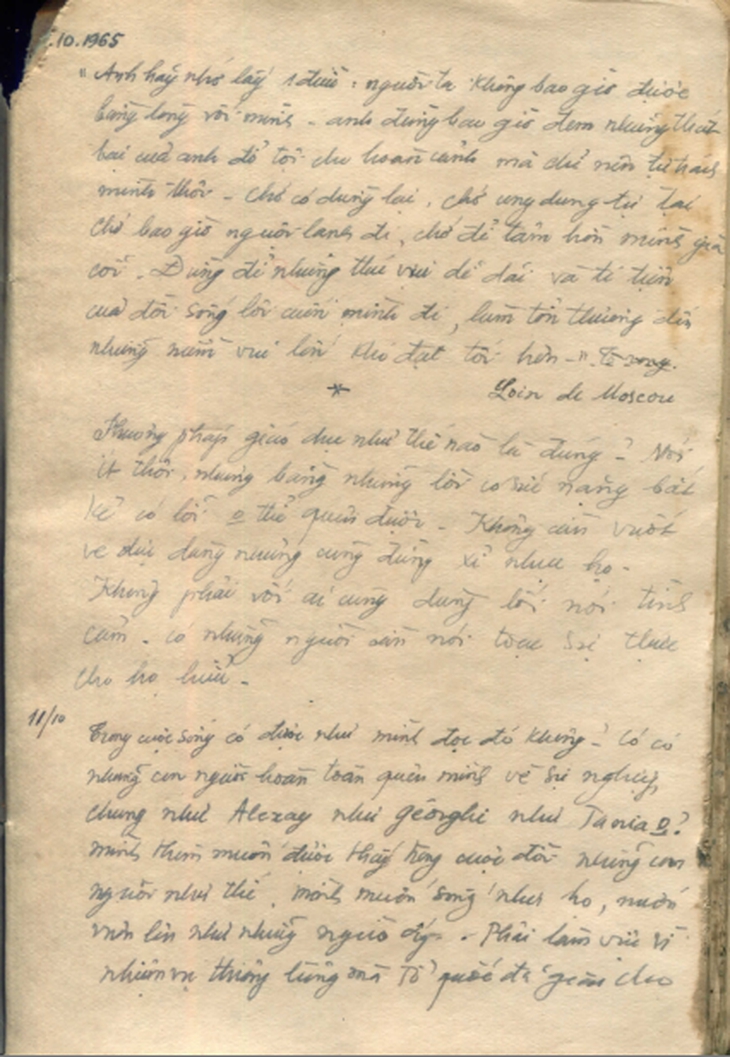 .10.1965
"Anh hãy nhớ lấy 1 điều: người ta không bao giờ được
bằng lòng với mình - anh đừng bao giờ đem những thất
bại của anh đổ tội cho hoàn cảnh mà chỉ nên tự trách
mình thôi - chớ có dừng lại, chớ ung dung tự tại
chớ bao giờ nguội lạnh đi, chớ để tâm hồn mình già
cỗi. Đừng để những thú vui dễ dãi và ti tiện
của đời sống lôi cuốn mình đi, làm tổn thương đến
những niềm vui lớn khó đạt tới hơn -"
*
Loin de Moscou
Phương pháp giáo dục như thế nào là đúng - Nói
ít thôi, nhưng bằng những lời có sức nặng bắt
kẻ có lỗi o thể quên được - Không cần vuốt
ve dịu dàng nhưng cũng đừng xỉ nhục họ -
Không phải với ai cũng dùng lối nói tình
cảm - có những người cần nói toạc sự thực
cho họ hiểu -
11/10
Trong cuộc sống có được như mình đọc đó không? Có có
những con người hoàn toàn quên mình về sự nghiệp
chung như Alexay như Géorghi như Tania o?
Mình thèm muốn được thấy trong cuộc đời những con
người như thế. Mình muốn sống như họ, muốn
vươn lên như những người ấy - Phải làm việc vì
nhiệm vụ thiêng liêng mà Tổ quốc đã giao cho